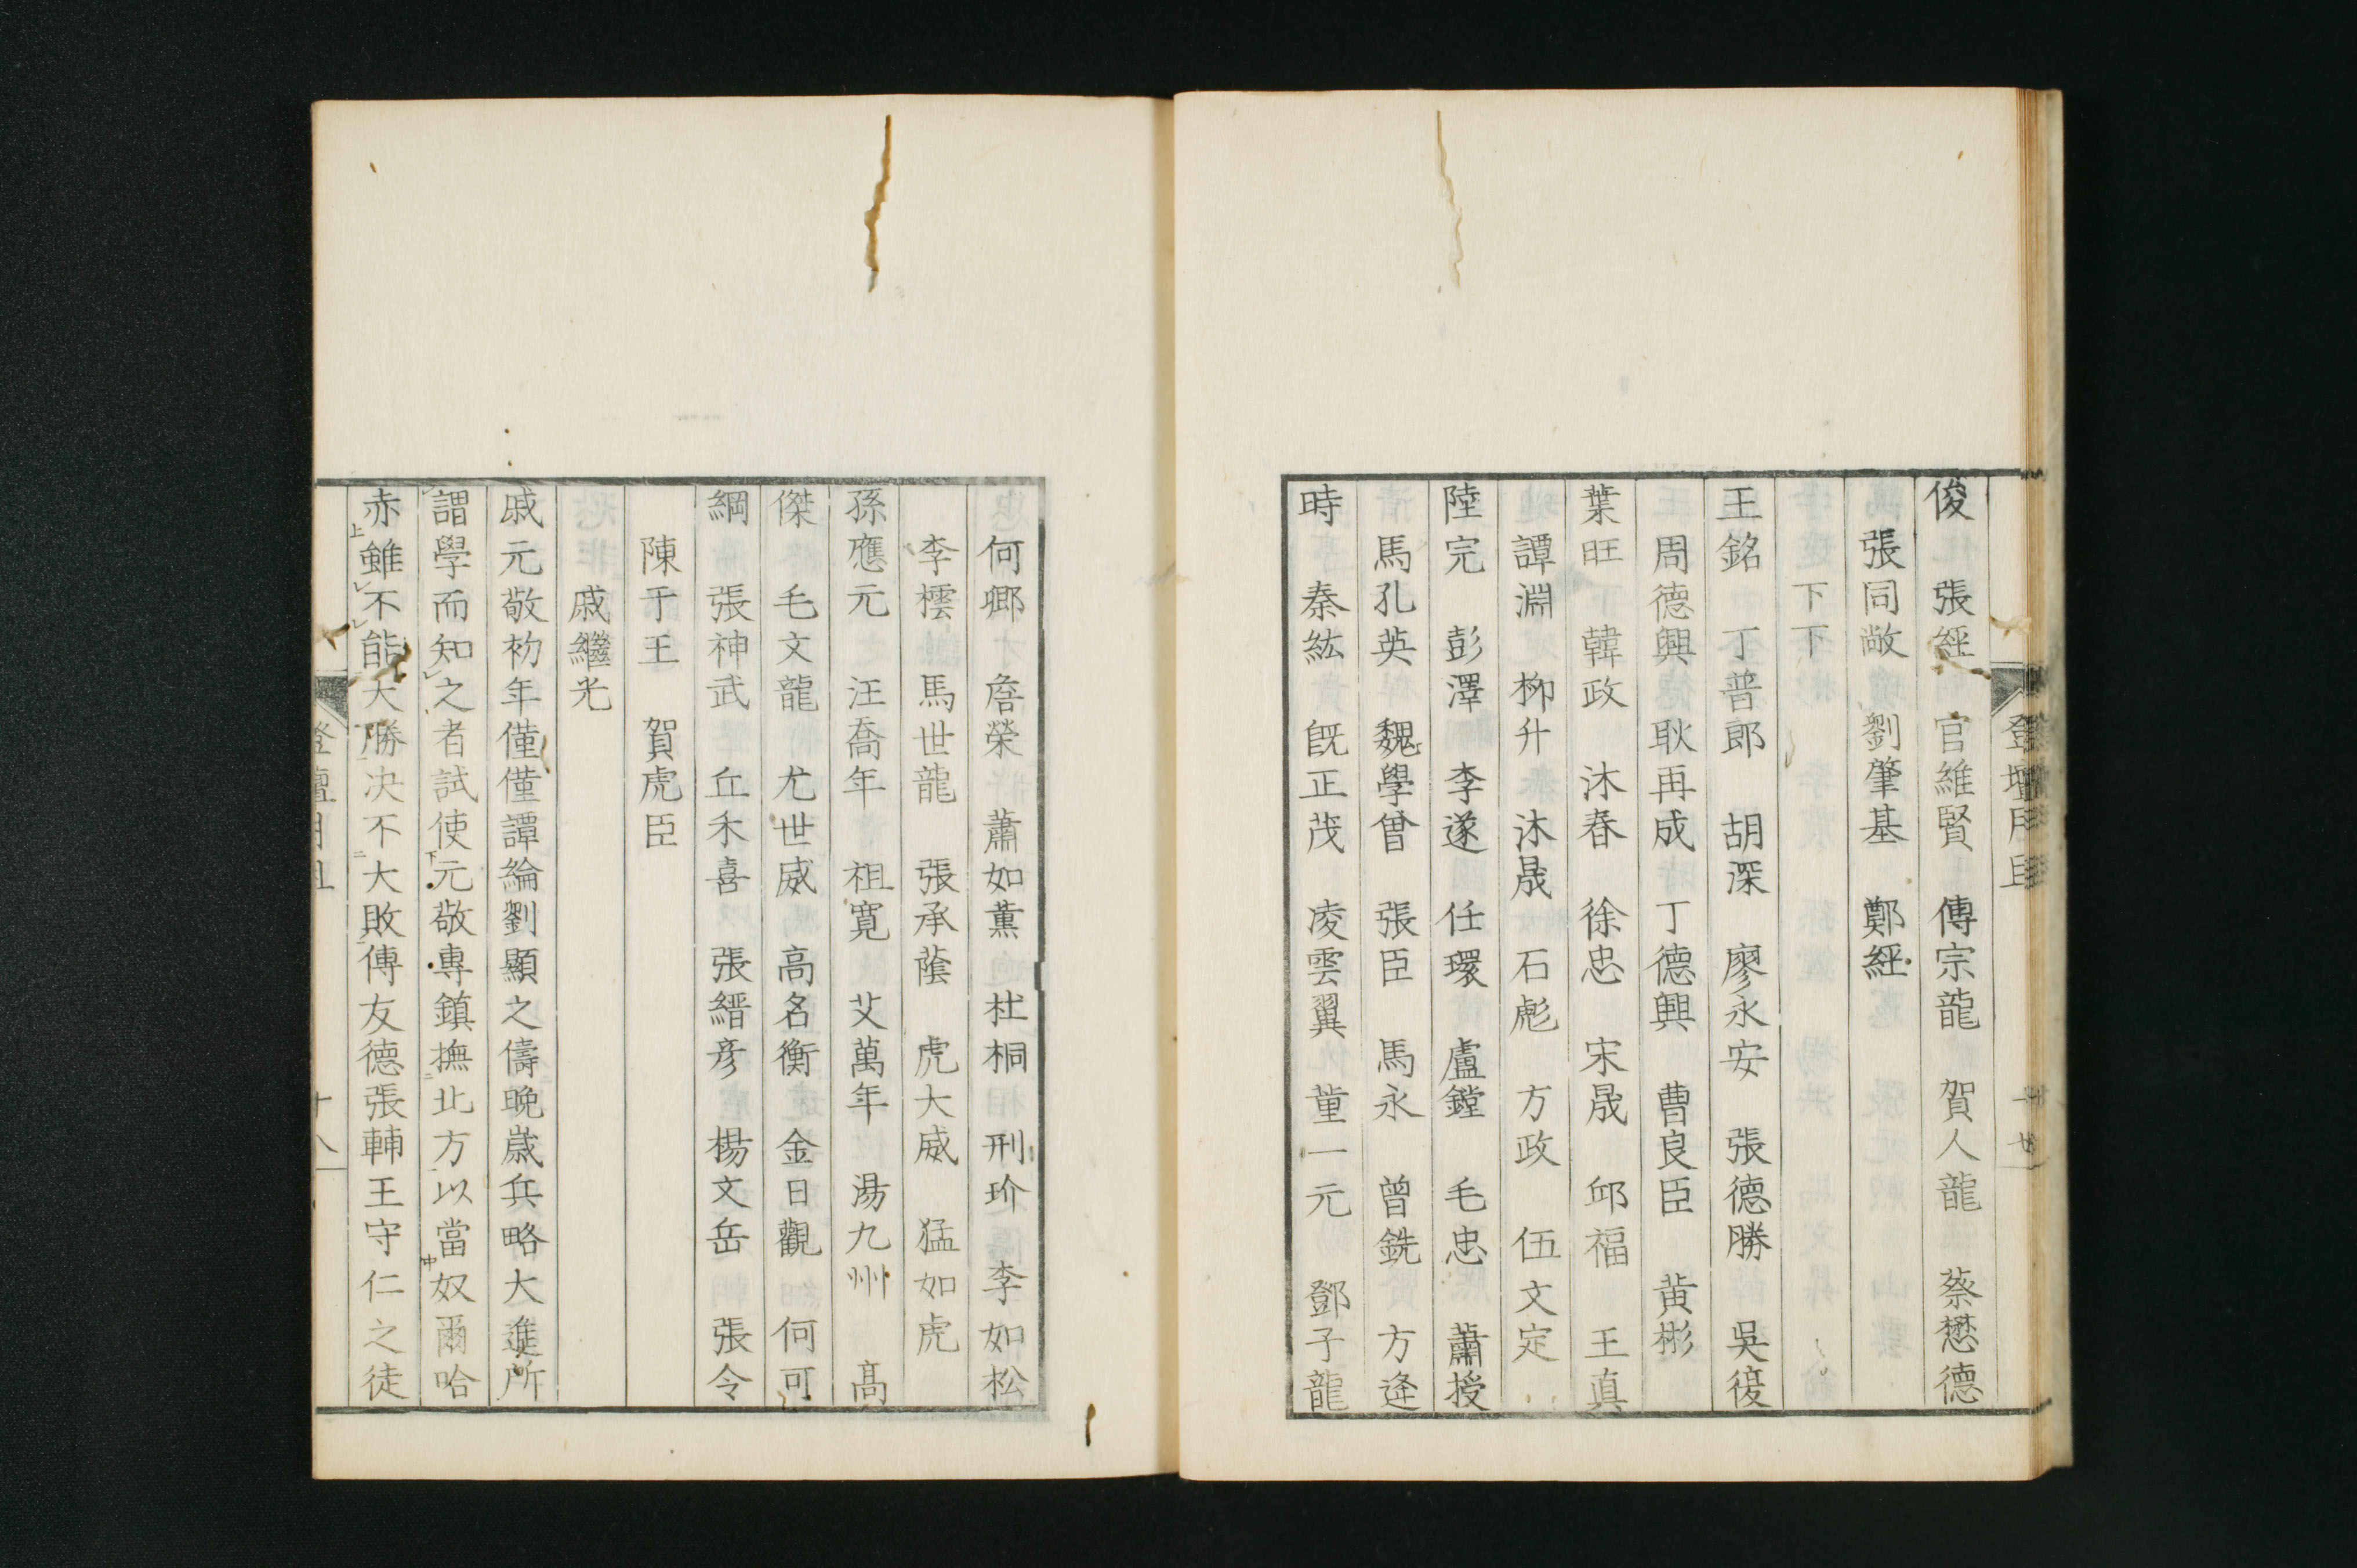 俊 張經 官維賢 傅宗龍 賀人龍 蔡懋德
張同敞 劉肇基 鄭經
下下
王銘 丁普郎 胡深 廖永安 張德勝 吳復
周德興 耿再成 丁德興 曹良臣 黃彬
葉旺 韓政 沐春 徐忠 宋晟 邱福 王真
譚淵 柳升 沐晟 石彪 方政 伍文定
陸完 彭澤 李遂 任環 盧鏜 毛忠 蕭授
馬孔英 魏學曾 張臣 馬永 曾銑 方逢
時 秦紘 旣正茂 凌雲翼 董一元 鄧子龍
何卿 詹榮 蕭如薰 杜桐 刑玠 李如松
李橒 馬世龍 張承蔭 虎大威 猛如虎
孫應元 汪喬年 祖寬 艾萬年 湯九州 高
傑 毛文龍 尤世威 高名衡 金日觀 何可
綱 張神武 丘禾喜 張縉彥 楊文岳 張令
陳于王 賀虎臣
戚繼光
戚元敬初年僅僅譚綸劉顯之儔晚歲兵略大進所
謂學而知之者試使元敬專鎮撫北方以當奴爾哈
赤雖不能大勝决不大敗傅友德張輔王守仁之徒
十八